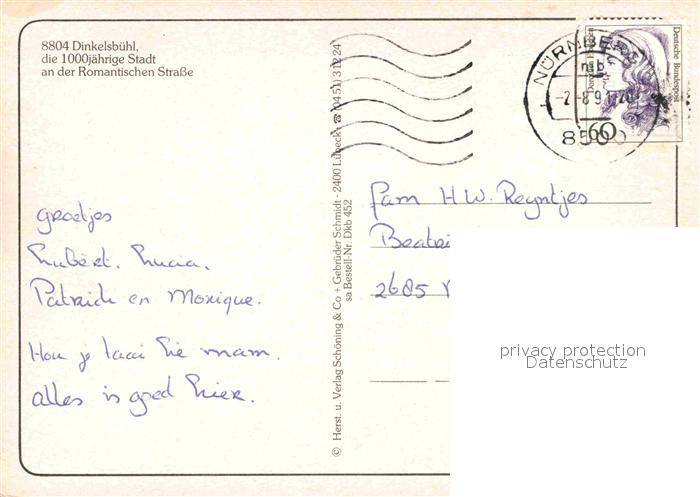 8804 Dinkelsbühl,
die 1000jährige Stadt
an der Romantischen Straße
NÜRNBERG
mb
-2.-8.91-20
8500
Deutsche Bundespost
60
© Herst. u. Verlag Schöning & Co + Gebrüder Schmidt · 2400 Lübeck · ☎ (0451) 31224
sa Bestell-Nr. Dkb 452
groetjes
Lubèrt. Lucia.
Patrick en Monique.
Hou je taai hè mam.
alles is goed hier.
fam H.W. Reyntjes
Beatri
2685
privacy protection
Datenschutz